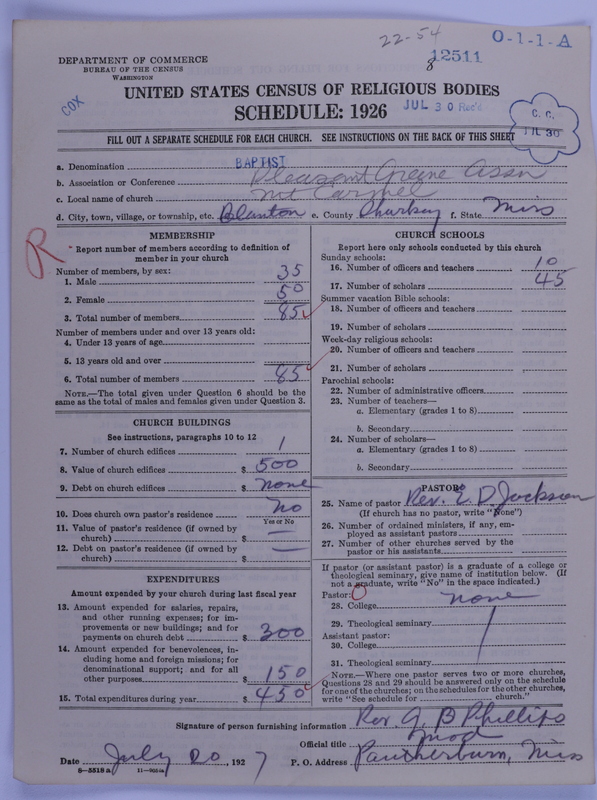 22-54
O-1-1-A
DEPARTMENT OF COMMERCE
BUREAU OF THE CENSUS
WASHINGTON
8 12511
UNITED STATES CENSUS OF RELIGIOUS BODIES
COX
SCHEDULE: 1926
JUL 30 Rec'd
C. C.
JUL 30
FILL OUT A SEPARATE SCHEDULE FOR EACH CHURCH. SEE INSTRUCTIONS ON THE BACK OF THIS SHEET
a. Denomination BAPTIST
b. Association or Conference Pleasant Greene Assn
c. Local name of church Mt Carmel
d. City, town, village, or township, etc. Blanton e. County Sharkey f. State Miss
R
MEMBERSHIP
Report number of members according to definition of
member in your church
Number of members, by sex:
1. Male 35
2. Female 50
3. Total number of members 85
Number of members under and over 13 years old:
4. Under 13 years of age
5. 13 years old and over
6. Total number of members 85
NOTE.—The total given under Question 6 should be the
same as the total of males and females given under Question 3.
CHURCH BUILDINGS
See instructions, paragraphs 10 to 12
7. Number of church edifices 1
8. Value of church edifices $ 500
9. Debt on church edifices $ none
10. Does church own pastor's residence no
Yes or No
11. Value of pastor's residence (if owned by
church) $ —
12. Debt on pastor's residence (if owned by
church) $ —
EXPENDITURES
Amount expended by your church during last fiscal year
13. Amount expended for salaries, repairs,
and other running expenses; for im-
provements or new buildings; and for
payments on church debt $ 300
14. Amount expended for benevolences, in-
cluding home and foreign missions; for
denominational support; and for all
other purposes $ 150
15. Total expenditures during year $ 450
CHURCH SCHOOLS
Report here only schools conducted by this church
Sunday schools:
16. Number of officers and teachers 10
17. Number of scholars 45
Summer vacation Bible schools:
18. Number of officers and teachers
19. Number of scholars
Week-day religious schools:
20. Number of officers and teachers
21. Number of scholars
Parochial schools:
22. Number of administrative officers
23. Number of teachers—
a. Elementary (grades 1 to 8)
b. Secondary
24. Number of scholars—
a. Elementary (grades 1 to 8)
b. Secondary
PASTOR
25. Name of pastor Rev. E. D. Jackson
(If church has no pastor, write "None")
26. Number of ordained ministers, if any, em-
ployed as assistant pastors
27. Number of other churches served by the
pastor or his assistants
If pastor (or assistant pastor) is a graduate of a college or
theological seminary, give name of institution below. (If
not a graduate, write "No" in the space indicated.)
Pastor: O
28. College none
29. Theological seminary
Assistant pastor:
30. College
31. Theological seminary
NOTE.—Where one pastor serves two or more churches,
Questions 28 and 29 should be answered only on the schedule
for one of the churches; on the schedules for the other churches,
write "See schedule for church."
Signature of person furnishing information Rev. G. B Phillips
Official title Mod
Date July 20, 1927 P. O. Address Pantherburn, Miss
8—5518a 11—9664a